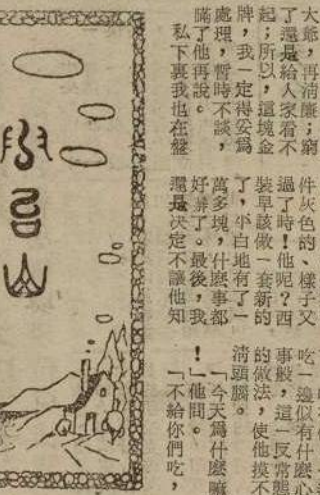 大爺，再清廉；窮
了還是給人家看不
起；所以，這塊金
牌，我一定得妥爲
處理，暫時不談，
瞞了他再說。
私下裏我也在盤
件灰色的、樣子又
過了時！他呢？西
裝早該做一套新的
了，平白地有了一
萬多塊，什麽事都
好辦了。最後，我
還是决定不讓他知
吃一邊似有什麽心
事般，這一反常態
的做法，使他摸不
清頭腦。
「今天爲什麽嘛
！」他問。
「不給你們吃，